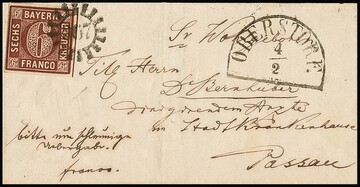 BAYERN
SECHS
KREUZER
FRANCO
6
OBERSTDF.
4
2
Sr
Tit Herrn
Dr Bernhuber
dirigirendem Arzte
im Stadtkrankenhause
Passau
bitte um schleunige
Uebergabe.
franco.